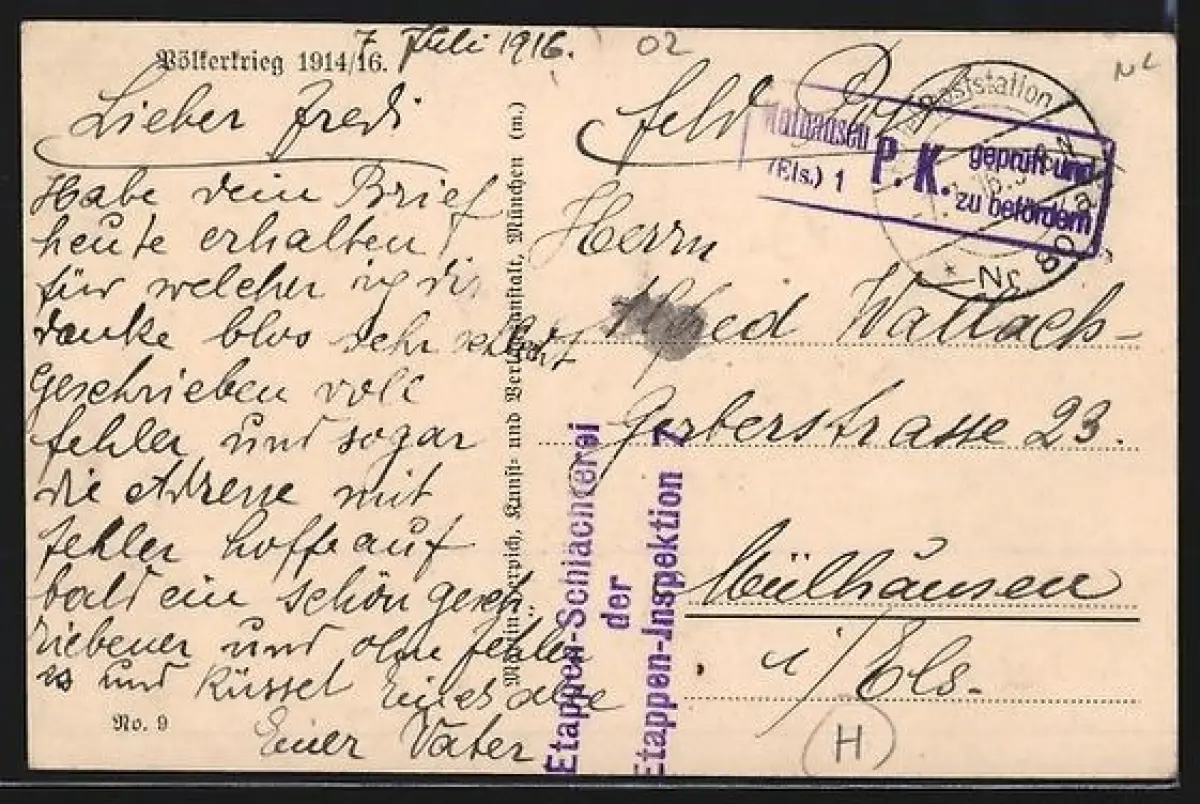 7 Juli 1916.
02
NL
Völkerkrieg 1914/16.
Lieber Fredi
Habe dein Brief
heute erhalten
für welcher ich dir
danke blos sehr schlecht
geschrieben voll
fehler und sogar
die Adresse mit
fehler hoffe auf
bald ein schön gesch
riebener und ohne fehler
es und Küsset Euch alle
Euer Vater
No. 9
Kunst- und Verlagsanstalt, München (m.)
Feld Post
Herrn
Alfred Wallach-
Gerberstrasse 23.
Mülhausen
i/Els.
H
Mülhausen
(Els.) 1
P. K.
geprüft und
zu befördern
Poststation
* Nr. 80
Etappen-Schlachterei
der
Etappen-Inspektion 7